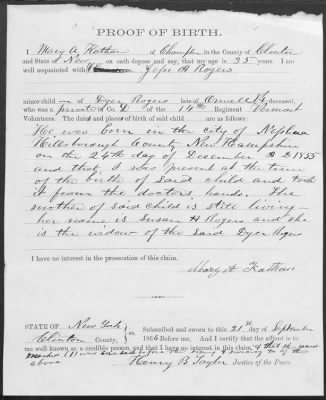 PROOF OF BIRTH.
I Mary A of Champlain in the County of Clinton
and State of New on oath depose and say, that my age is 35 years. I am
well acquainted with Jesse H Rogers
minor child of Dyer Rogers late of Orwell Vt, deceased,
who was a private in Co. D of the 14th Regiment Vermont
Volunteers. The dates and places of birth of said child are as follows:
He was born in the city of Nashua
Hillsborough County New Hampshire
on the 24th day of December A D 1855
and that I was present at the time
of the birth of said child and took
it from the doctors hands. The
mother of said child is still living—
her name is Susan H Rogers and she
is the widow of the said Dyer Rogers
I have no interest in the prosecution of this claim.
Mary A
STATE OF New York
Clinton County, ss.
Subscribed and sworn to this 21st day of September
1886 Before me. And I certify that the affiant is to
me well known as a credible person, and that I have no interest in this claim, & that the word
(1) was before the signing & swearing to of the
above
Henry B Taylor Justice of the Peace